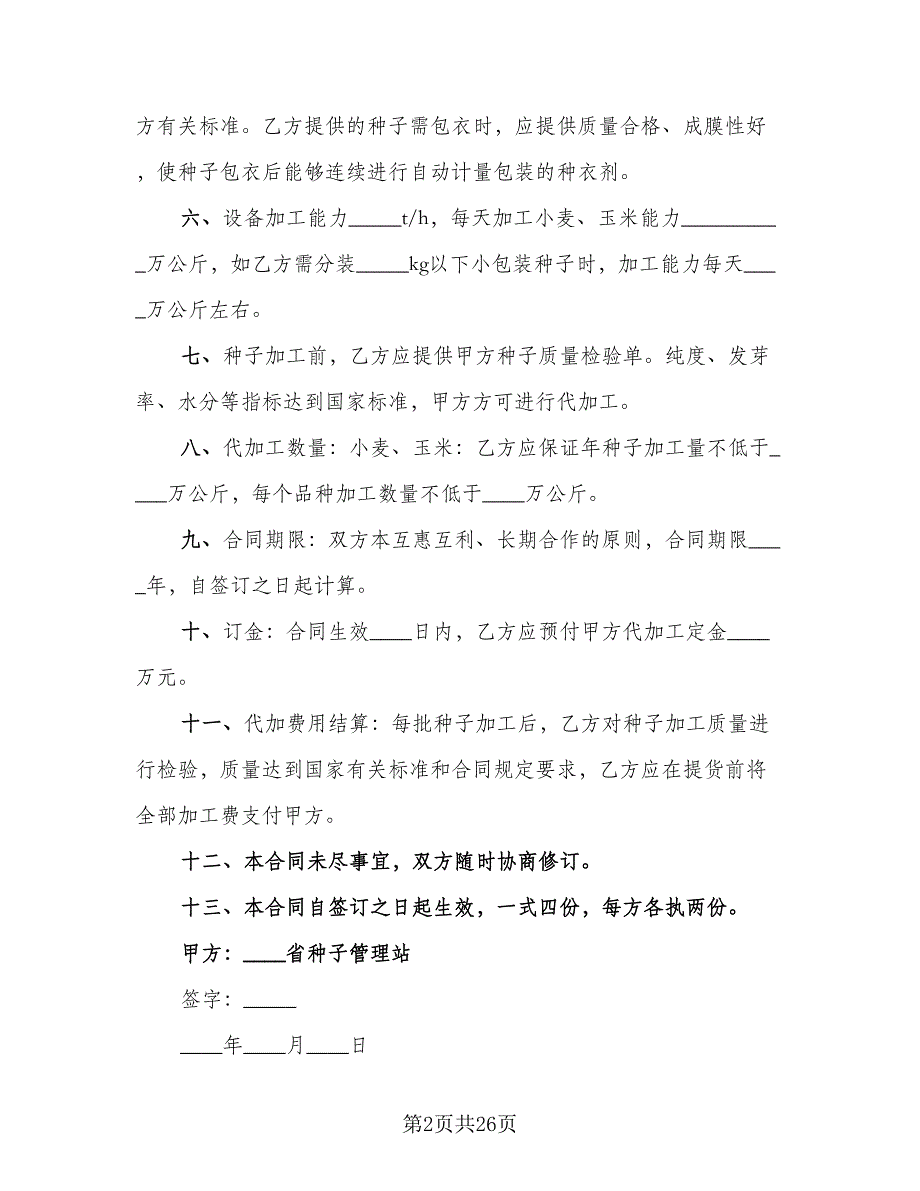 方有关标准。乙方提供的种子需包衣时，应提供质量合格、成膜性好
，使种子包衣后能够连续进行自动计量包装的种衣剂。
六、设备加工能力_____t/h，每天加工小麦、玉米能力_________
_万公斤，如乙方需分装_____kg以下小包装种子时，加工能力每天___
_万公斤左右。
七、种子加工前，乙方应提供甲方种子质量检验单。纯度、发芽
率、水分等指标达到国家标准，甲方方可进行代加工。
八、代加工数量：小麦、玉米：乙方应保证年种子加工量不低于_
___万公斤，每个品种加工数量不低于____万公斤。
九、合同期限：双方本互惠互利、长期合作的原则，合同期限___
_年，自签订之日起计算。
十、订金：合同生效____日内，乙方应预付甲方代加工定金____
万元。
十一、代加费用结算：每批种子加工后，乙方对种子加工质量进
行检验，质量达到国家有关标准和合同规定要求，乙方应在提货前将
全部加工费支付甲方。
十二、本合同未尽事宜，双方随时协商修订。
十三、本合同自签订之日起生效，一式四份，每方各执两份。
甲方：____省种子管理站
签字：_____
____年____月____日
第2页共26页